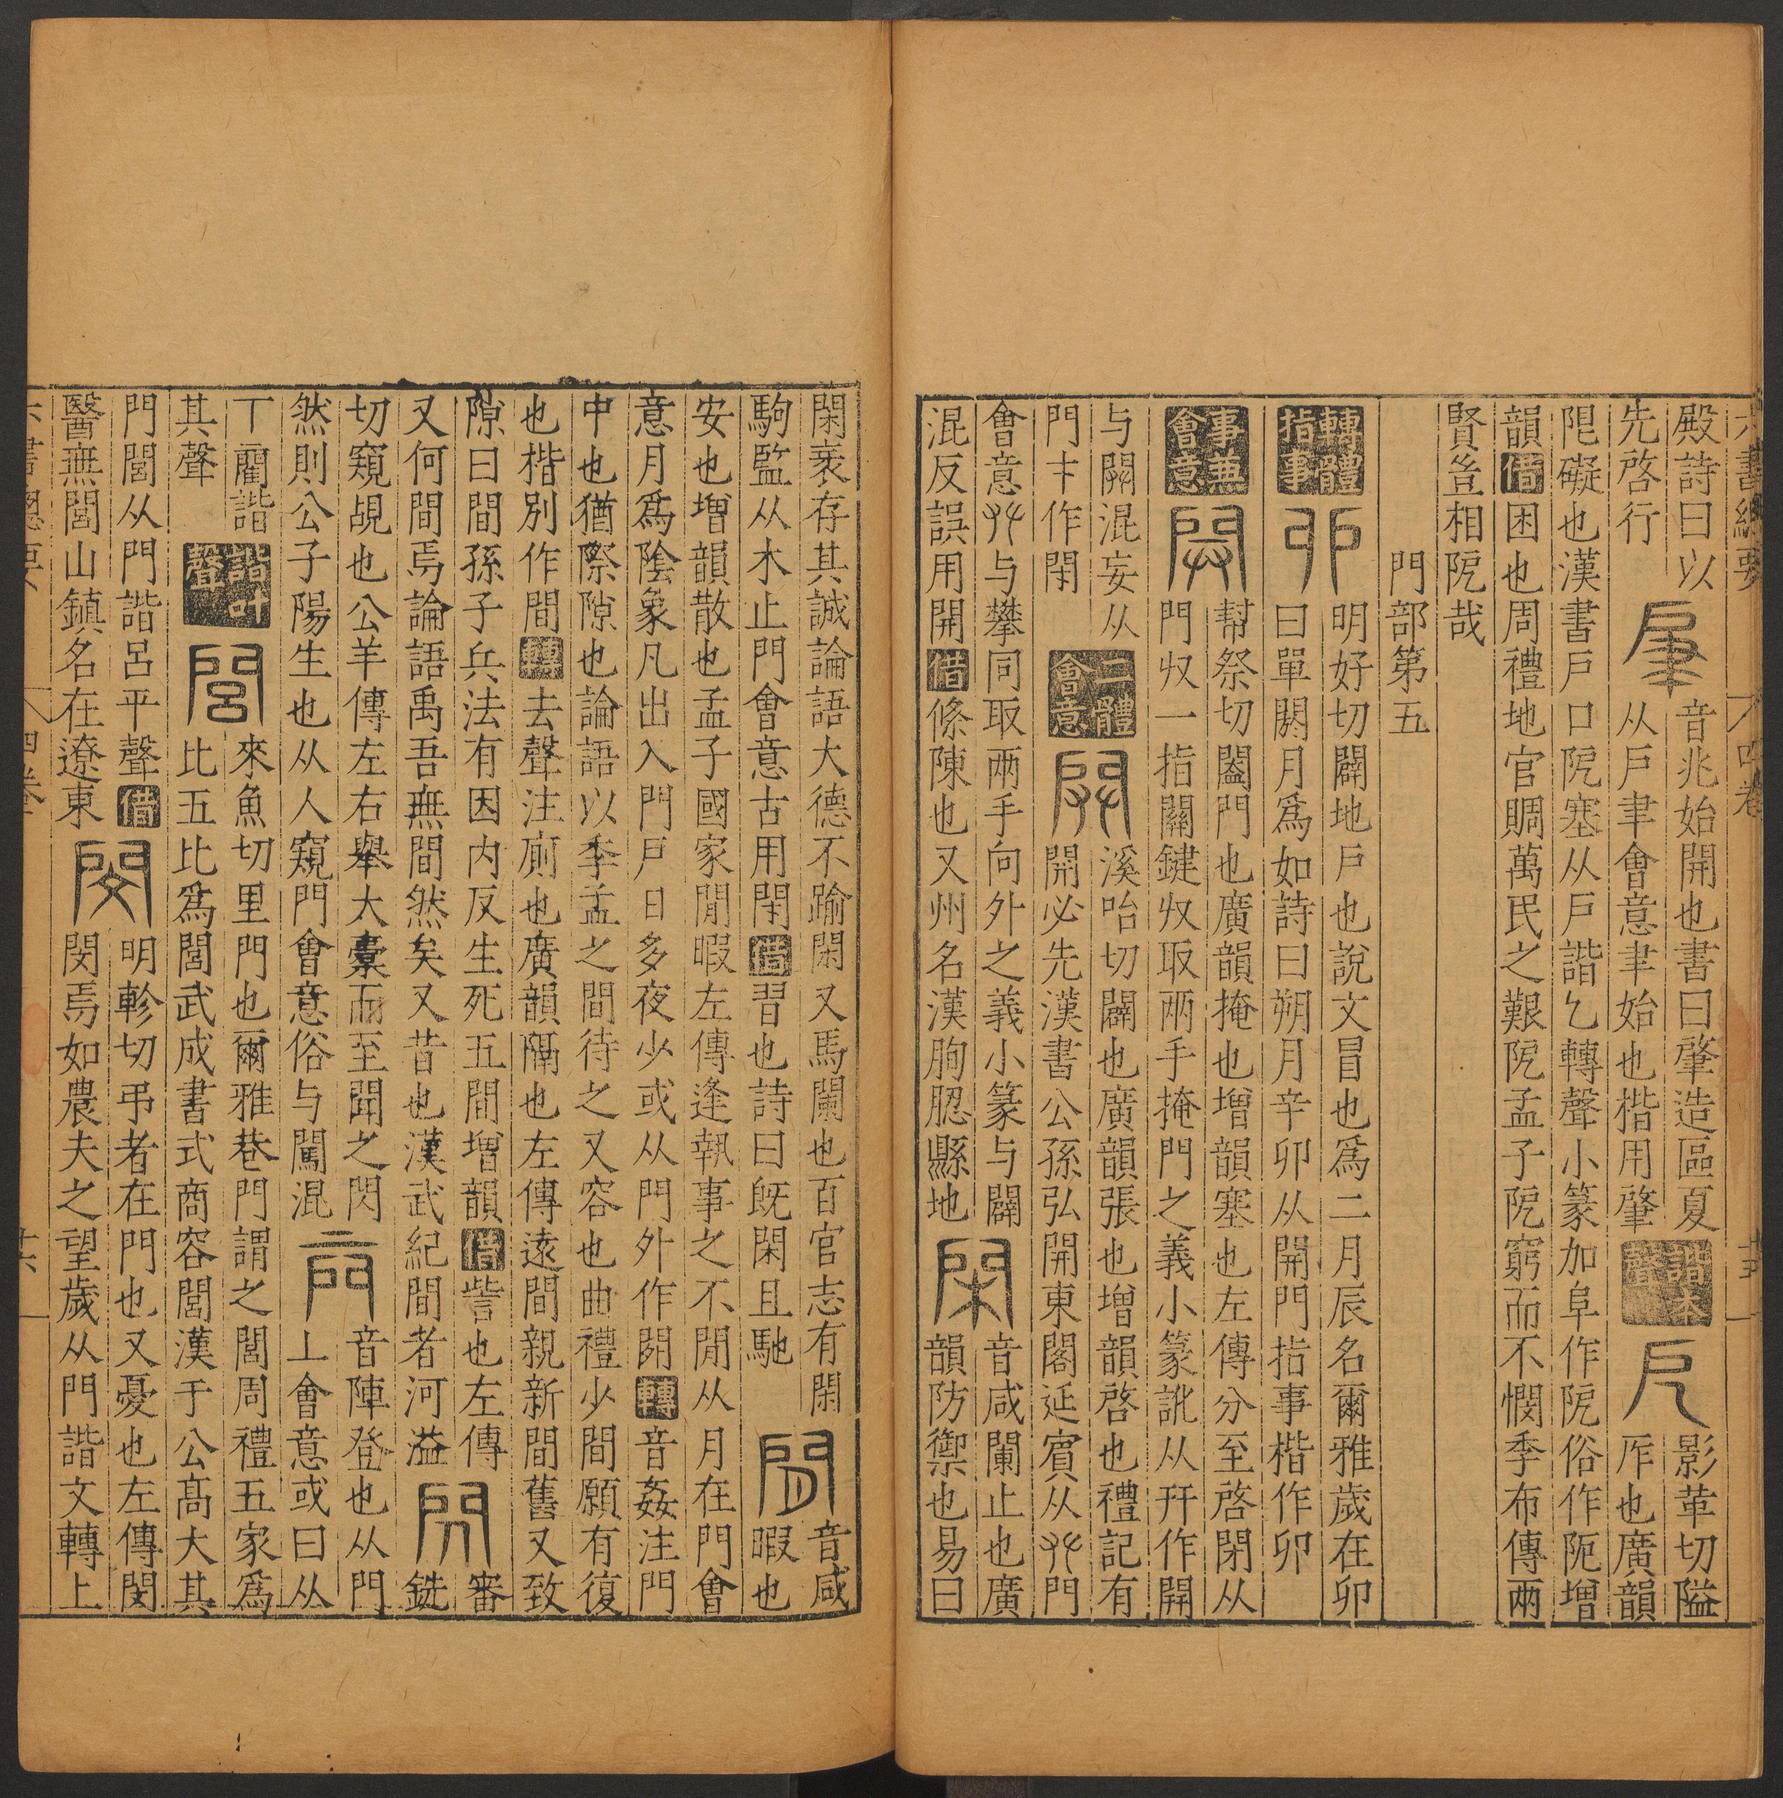 六書緫要 四卷 十五
殿詩曰以 肁 音兆始開也書曰肇造區夏 諧本聲 戹 影革切隘
先啓行 从戶聿會意聿始也楷用肇 戹也廣韻
阸礙也漢書戶口阸塞从戶諧乙轉聲小篆加阜作阸俗作阨增
韻借困也周禮地官賙萬民之艱阸孟子阸窮而不憫季布傳兩
賢豈相阸哉
門部第五
轉體指事 卯 明好切闢地戶也說文冒也爲二月辰名爾雅歲在卯
曰單閼月爲如詩曰朔月辛卯从開門指事楷作卯
事兼會意 幫祭切闔門也廣韻掩也增韻塞也左傳分至啓閉从
門𠬞一指關鍵𠬞取兩手掩門之義小篆訛从幵作開
与開混妄从 二體會意 開 溪咍切闢也廣韻張也增韻啓也禮記有
門才作閉 開必先漢書公孫弘開東閣延賓从𠬜門
會意𠬜与攀同取兩手向外之義小篆与闢 閑 音咸闌止也廣
混反誤用開借條陳也又州名漢朐䏰縣地 韻防禦也易曰
閑衺存其誠論語大德不踰閑又馬闌也百官志有閑 閒 音咸
駒監从木止門會意古用閑借習也詩曰旣閑且馳 暇也
安也增韻散也孟子國家閒暇左傳逢執事之不閒从月在門會
意月爲陰象凡出入門戶日多夜少或从門外作閒轉音姦注門
中也猶際隙也論語以季孟之間待之又容也曲禮少間願有復
也楷別作間轉去聲注廁也廣韻隔也左傳遠間親新間舊又致
隙曰間孫子兵法有因内反生死五間增韻借訾也左傳 閃 審
又何間焉論語禹吾無間然矣又昔也漢武紀間者河溢 銑
切窺覘也公羊傳左右舉大橐而至闖之閃 音陣登也从門
然則公子陽生也从人窺門會意俗与闖混 丄會意或曰从
丅䕞諧 諧叶聲 閭 來魚切里門也爾雅巷門謂之閭周禮五家爲
其聲 比五比爲閭武成書式商容閭漢于公髙大其
門閭从門諧呂平聲借 閔 明軫切弔者在門也又憂也左傳閔
醫無閭山鎮名在遼東 閔焉如農夫之望歲从門諧文轉上
六書緫要 四卷 十六